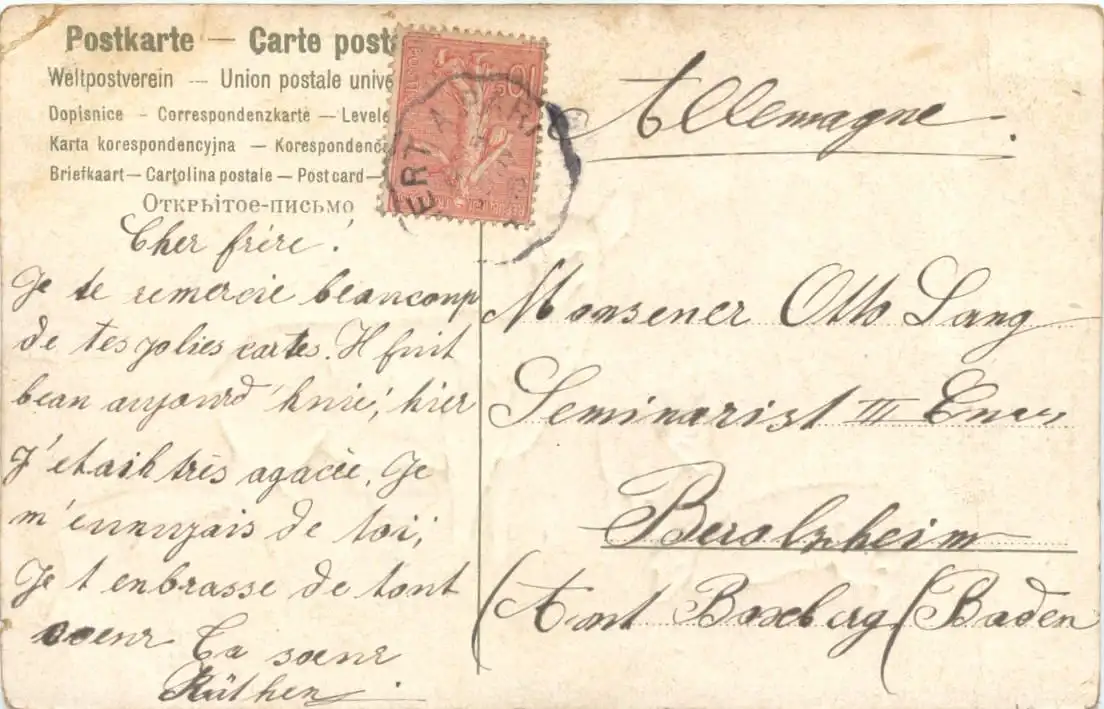 Postkarte — Carte post
Weltpostverein — Union postale unive
Dopisnice - Correspondenzkarte — Levele
Karta korespondencyjna — Korespondenč
Briefkaart — Cartolina postale — Post card —
Открытое-письмо
10
ERT A PARI
Allemagne.
Cher frère!
Je te remercie beaucoup
de tes jolies cartes. Il fait
beau aujourd'huie; hier
j'étaih très agacée. Je
m'ennuyais de toi;
Je t enbrasse de tout
coeur Ta soeur
Käthen.
Monsener Otto Lang
Seminarist III
Berolzheim
(Amt Boxberg (Baden